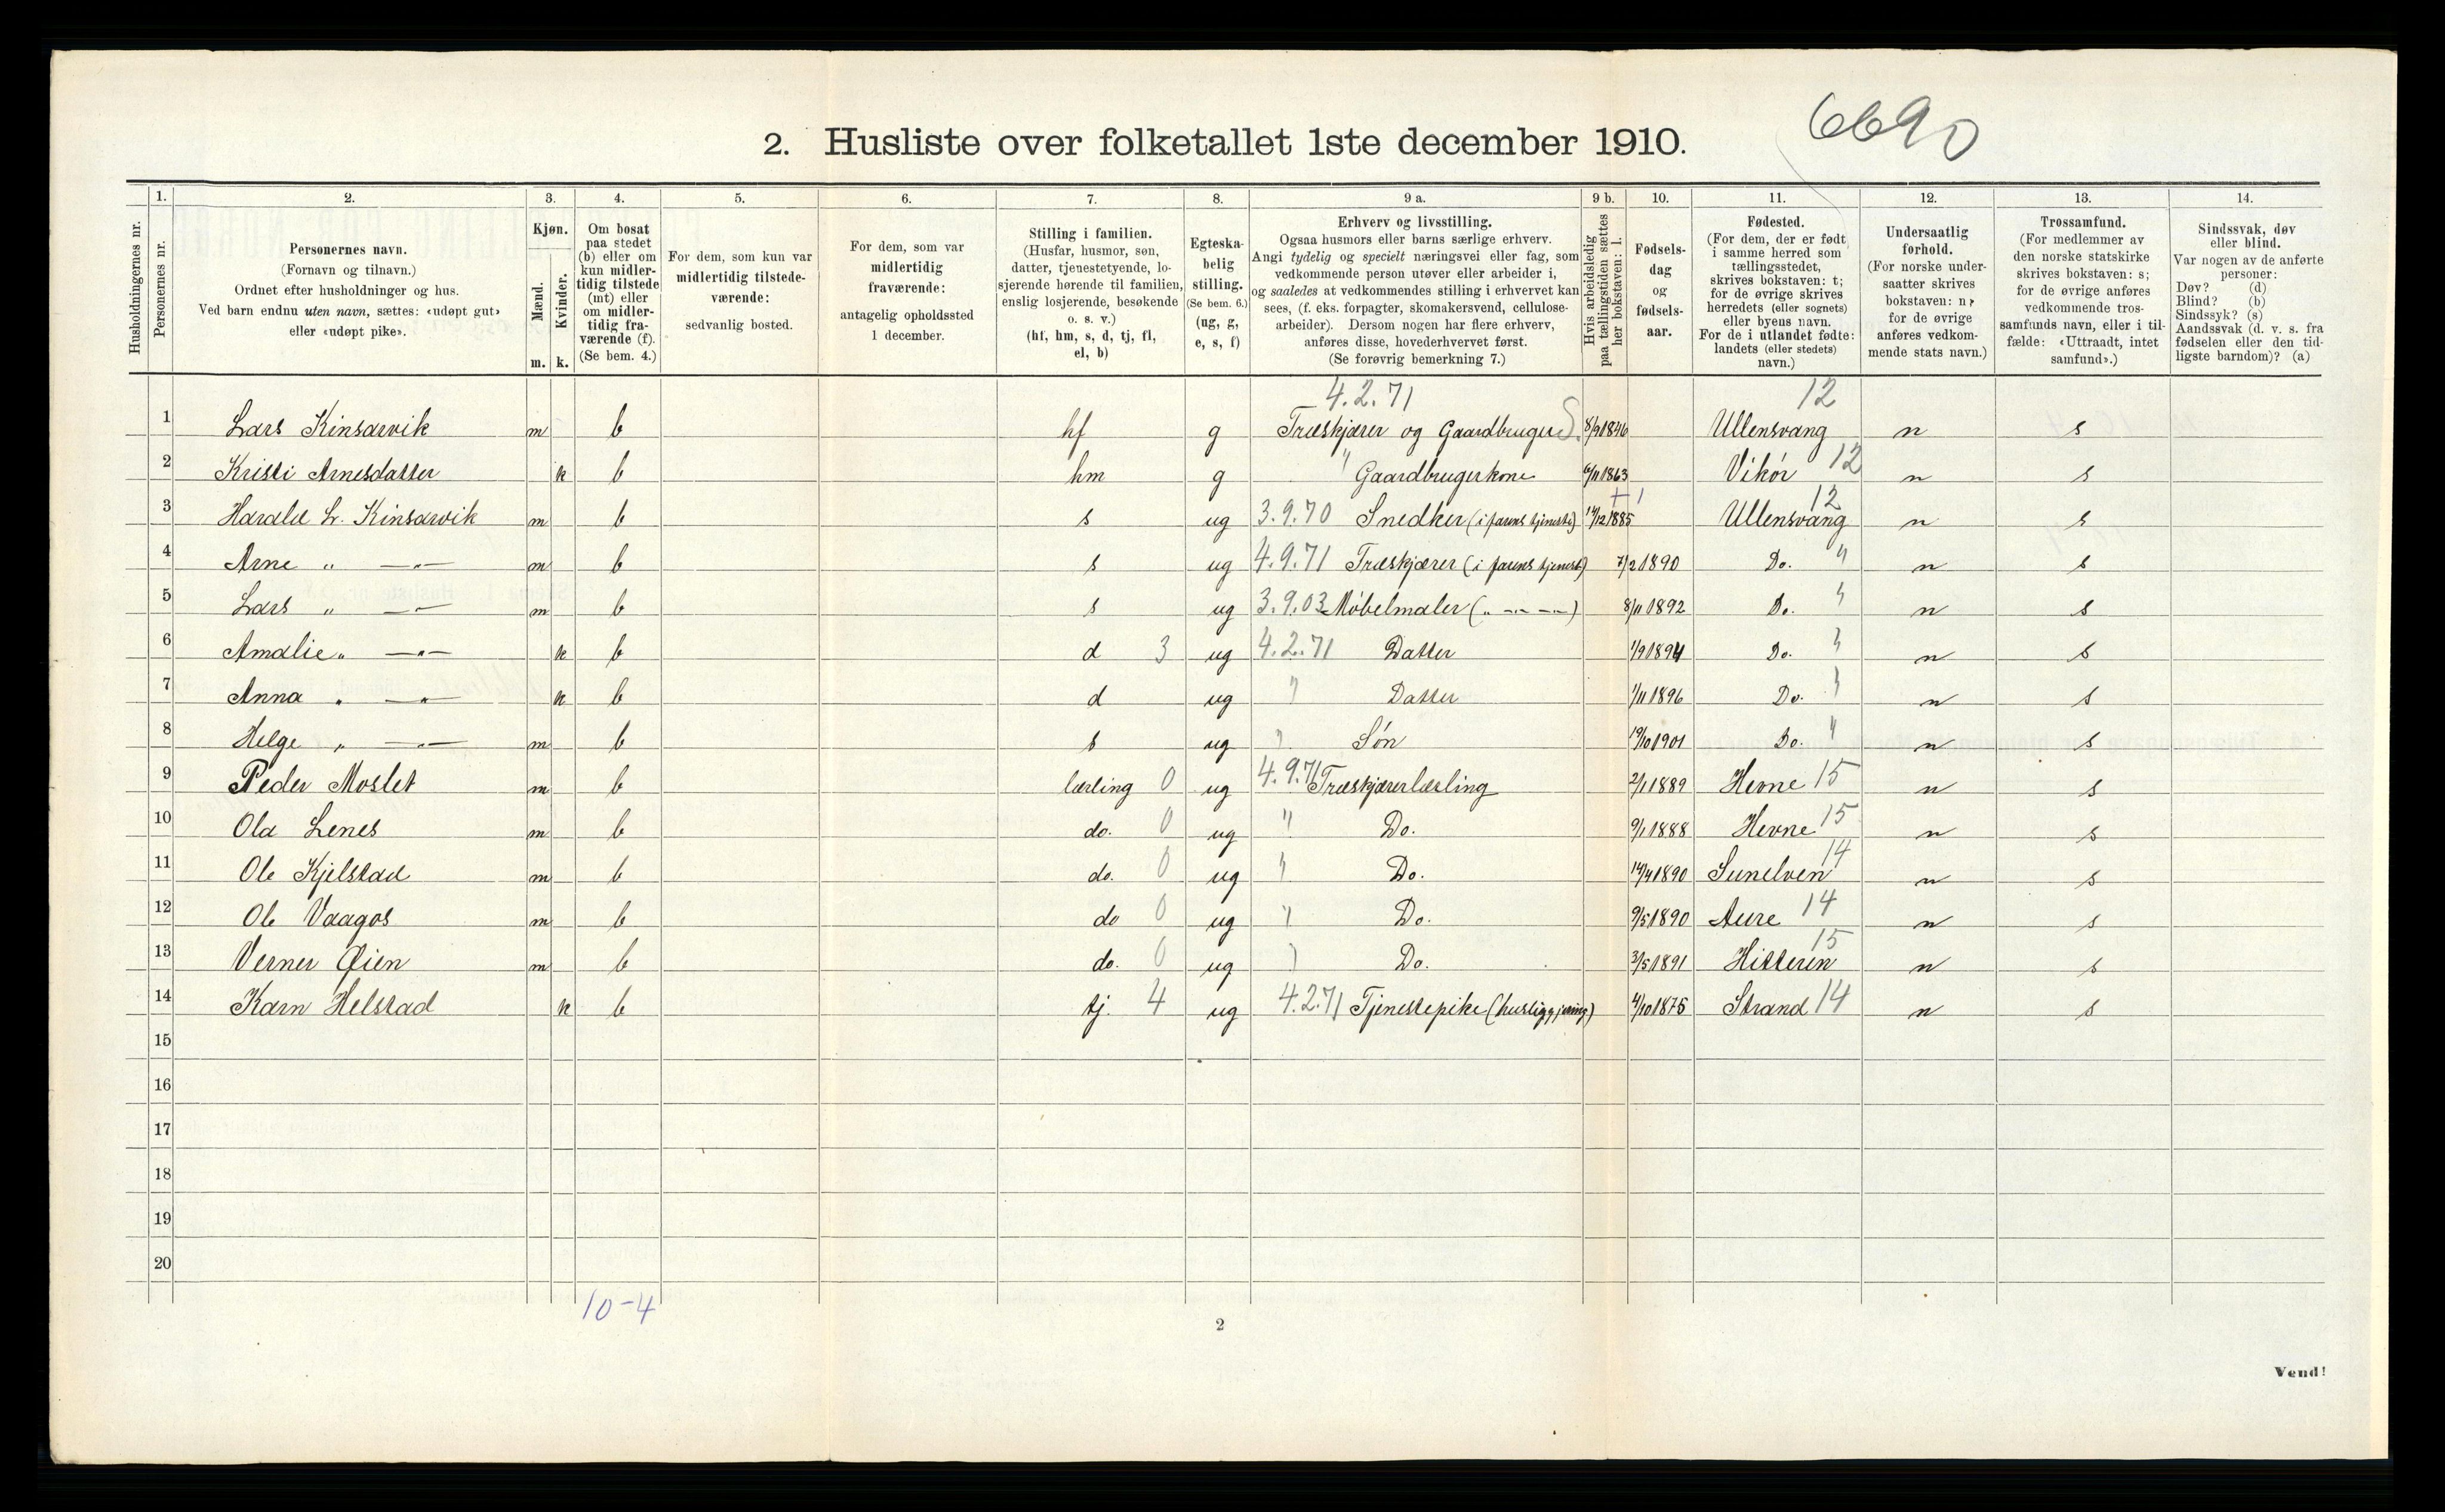 6690
2. Husliste over folketallet 1ste december 1910.
1. 2. 3. 4. 5. 6. 7. 8. 9 a. 9 b. 10. 11. 12. 13. 14.
Husholdningernes nr.
Personernes nr.
Personernes navn.
(Fornavn og tilnavn.)
Ordnet efter husholdninger og hus.
Ved barn endnu uten navn, sættes: «udøpt gut»
eller «udøpt pike».
Kjøn.
Mænd.
Kvinder.
m. k.
Om bosat
paa stedet
(b) eller om
kun midler-
tidig tilstede
(mt) eller
om midler-
tidig fra-
værende (f).
(Se bem. 4.)
For dem, som kun var
midlertidig tilstede-
værende:
sedvanlig bosted.
For dem, som var
midlertidig
fraværende:
antagelig opholdssted
1 december.
Stilling i familien.
(Husfar, husmor, søn,
datter, tjenestetyende, lo-
sjerende hørende til familien,
enslig losjerende, besøkende
o. s. v.)
(hf, hm, s, d, tj, fl,
el, b)
Egteska-
belig
stilling.
(Se bem. 6.)
(ug, g,
e, s, f)
Erhverv og livsstilling.
Ogsaa husmors eller barns særlige erhverv.
Angi tydelig og specielt næringsvei eller fag, som
vedkommende person utøver eller arbeider i,
og saaledes at vedkommendes stilling i erhvervet kan
sees, (f. eks. forpagter, skomakersvend, cellulose-
arbeider). Dersom nogen har flere erhverv,
anføres disse, hovederhvervet først.
(Se forøvrig bemerkning 7.)
Hvis arbeidsledig
paa tællingstiden sættes
her bokstaven: l.
Fødsels-
dag
og
fødsels-
aar.
Fødested.
(For dem, der er født
i samme herred som
tællingsstedet,
skrives bokstaven: t;
for de øvrige skrives
herredets (eller sognets)
eller byens navn.
For de i utlandet fødte:
landets (eller stedets)
navn.)
Undersaatlig
forhold.
(For norske under-
saatter skrives
bokstaven: n;
for de øvrige
anføres vedkom-
mende stats navn.)
Trossamfund.
(For medlemmer av
den norske statskirke
skrives bokstaven: s;
for de øvrige anføres
vedkommende tros-
samfunds navn, eller i til-
fælde: «Uttraadt, intet
samfund».)
Sindssvak, døv
eller blind.
Var nogen av de anførte
personer:
Døv? (d)
Blind? (b)
Sindssyk? (s)
Aandssvak (d. v. s. fra
fødselen eller den tid-
ligste barndom)? (a)
4.2.71 12
1 Lars Kinsarvik m b hf g Træskjærer og Gaardbruger S. 8/9 1846 Ullensvang n s
2 Kristi Arnesdatter k b hm g " Gaardbrugerkone 6/11 1863 Vikör 12 n s
3 Harald L. Kinsarvik m b s ug 3.9.70 Snedker (i farens tjeneste) 14/12 1885 Ullensvang 12 n s
4 Arne " —"— m b s ug 4.9.71 Træskjærer (i farens tjenest) 7/2 1890 Do. " n s
5 Lars " —"— m b s ug 3.9.03 Møbelmaler (" —"— —) 8/11 1892 Do. " n s
6 Amalie " —"— k b d 3 ug 4.2.71 Datter 1/9 1894 Do. " n s
7 Anna " —"— k b d ug " Datter 1/11 1896 Do. " n s
8 Helge " —"— m b s ug " Søn 19/10 1901 Do. " n s
9 Peder Moslet m b lærling 0 ug 4.9.71 Træskjærerlærling 2/1 1889 Hevne 15 n s
10 Ola Lenes m b do. 0 ug " Do. 9/1 1888 Hevne 15 n s
11 Ole Kjelstad m b do. 0 ug " Do. 14/4 1890 Sunelven 14 n s
12 Ole Vaagos m b do 0 ug " Do. 9/5 1890 Aure 14 n s
13 Verner Øien m b do. 0 ug " Do. 3/5 1891 Hitteren 15 n s
14 Karn Helstad k b tj. 4 ug 4.2.71 Tjenestepike (husliggjerning) 4/10 1875 Strand 14 n s
15
16
17
18
19
20
10-4
2
Vend!